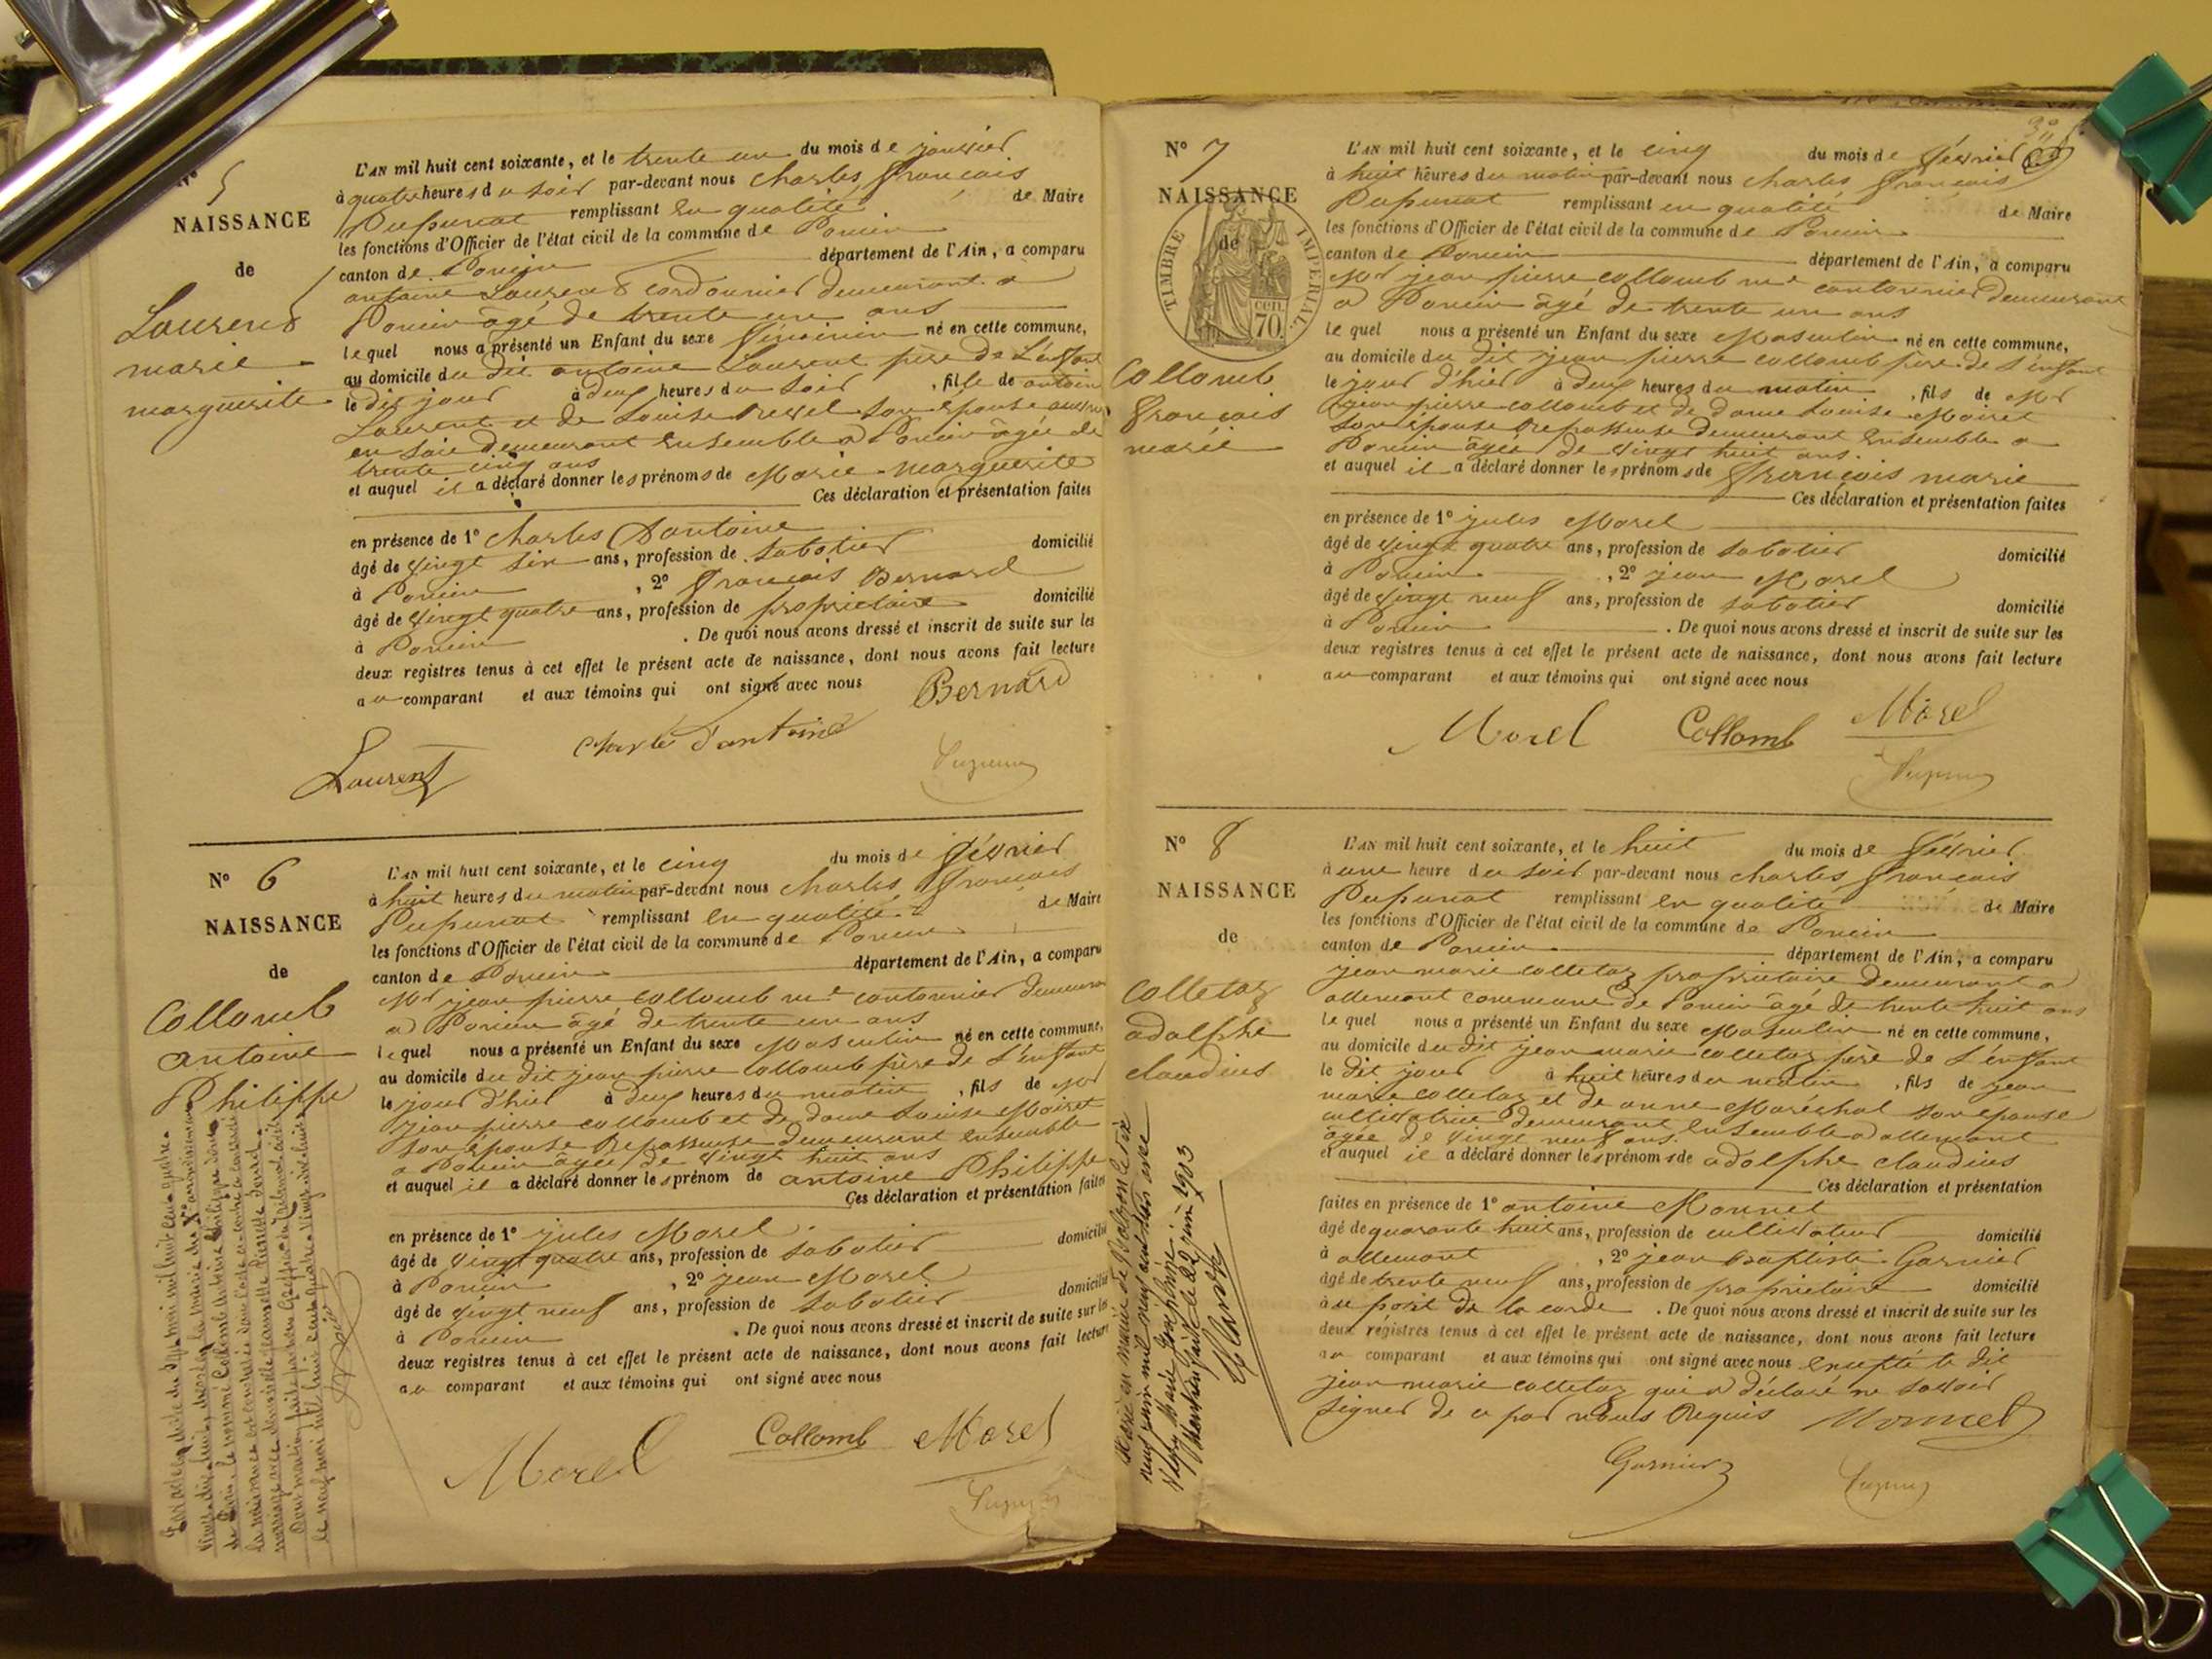 N° 5
NAISSANCE
de
Laurent
marie
marguerite
L'AN mil huit cent soixante, et le trente un du mois de janvier
à quatre heures du soir par-devant nous Charles François
Pupunat remplissant en qualité de Maire
les fonctions d'Officier de l'état civil de la commune de Poncin
canton de Poncin département de l'Ain, a comparu
antoine Laurent cordonnier demeurant a
Poncin âgé de trente un ans
lequel nous a présenté un Enfant du sexe féminin né en cette commune,
au domicile du dit antoine Laurent père de l'enfant
le dit jour à deux heures du soir, fille de antoine
Laurent et de Louise son épouse
en soie demeurant ensemble a Poncin âgée de
trente cinq ans
et auquel il a déclaré donner les prénoms de Marie marguerite
Ces déclaration et présentation faites
en présence de 1° Charles Dantoine
âgé de vingt six ans, profession de sabotier domicilié
à Poncin, 2° François Bernard
âgé de vingt quatre ans, profession de propriétaire domicilié
à Poncin. De quoi nous avons dressé et inscrit de suite sur les
deux registres tenus à cet effet le présent acte de naissance, dont nous avons fait lecture
au comparant et aux témoins qui ont signé avec nous
Bernard
Charle d'antoine
Laurent
N° 6
NAISSANCE
de
Collomb
antoine
Philippe
L'AN mil huit cent soixante, et le cinq du mois de février
à huit heures du matin par-devant nous Charles François
Pupunat remplissant en qualité de Maire
les fonctions d'Officier de l'état civil de la commune de Poncin
canton de Poncin département de l'Ain, a comparu
Mr jean pierre collomb me cantonnier demeurant
a Poncin âgé de trente un ans
lequel nous a présenté un Enfant du sexe Masculin né en cette commune,
au domicile du dit jean pierre collomb père de l'enfant
le jour d'hier à deux heures du matin, fils de Mr
jean pierre collomb et de dame Louise Moiret
son épouse repasseuse demeurant ensemble
a Poncin âgée de vingt huit ans
et auquel il a déclaré donner les prénom de antoine Philippe
Ces déclaration et présentation faites
en présence de 1° jules Morel
âgé de vingt quatre ans, profession de sabotier domicilié
à Poncin, 2° jean Morel
âgé de vingt neuf ans, profession de sabotier domicilié
à Poncin. De quoi nous avons dressé et inscrit de suite sur les
deux registres tenus à cet effet le présent acte de naissance, dont nous avons fait lecture
au comparant et aux témoins qui ont signé avec nous
Morel Collomb Morel
Par acte en date du dix mai mil huit cent quatre
vingt dix huit, dressé à la mairie du Xe arrondissement
de Paris, le nommé Collomb Antoine Philippe dont
la naissance est constatée dans l'acte ci-contre a contracté
mariage avec demoiselle
N° 7
NAISSANCE
de
TIMBRE IMPERIAL
cen. 70.
Collomb
François
marie
L'AN mil huit cent soixante, et le cinq du mois de février
à huit heures du matin par-devant nous Charles François
Pupunat remplissant en qualité de Maire
les fonctions d'Officier de l'état civil de la commune de Poncin
canton de Poncin département de l'Ain, a comparu
Mr jean pierre collomb me cantonnier demeurant
a Poncin âgé de trente un ans
le quel nous a présenté un Enfant du sexe Masculin né en cette commune,
au domicile du dit jean pierre collomb père de l'enfant
le jour d'hier à deux heures du matin, fils de Mr
jean pierre collomb et de dame Louise Moiret
son épouse repasseuse demeurant ensemble a
Poncin âgée de vingt huit ans.
et auquel il a déclaré donner les prénoms de François marie
Ces déclaration et présentation faites
en présence de 1° jules Morel
âgé de vingt quatre ans, profession de sabotier domicilié
à Poncin, 2° jean Morel
âgé de vingt neuf ans, profession de sabotier domicilié
à Poncin. De quoi nous avons dressé et inscrit de suite sur les
deux registres tenus à cet effet le présent acte de naissance, dont nous avons fait lecture
au comparant et aux témoins qui ont signé avec nous
Morel Collomb Morel
N° 8
NAISSANCE
de
colletaz
adolphe
claudius
L'AN mil huit cent soixante, et le huit du mois de février
à une heure du soir par-devant nous Charles François
Pupunat remplissant en qualité de Maire
les fonctions d'Officier de l'état civil de la commune de Poncin
canton de Poncin département de l'Ain, a comparu
jean marie colletaz propriétaire demeurant a
allement commune de Poncin âgé de trente huit ans
le quel nous a présenté un Enfant du sexe Masculin né en cette commune,
au domicile du dit jean marie colletaz père de l'enfant
le dit jour à huit heures du matin, fils de jean
marie colletaz et de anne Maréchal son épouse
cultivatrice demeurant ensemble a allement
âgée de vingt neuf ans.
et auquel il a déclaré donner les prénoms de adolphe claudius
Ces déclaration et présentation
faites en présence de 1° antoine Monnet
âgé de quarante huit ans, profession de cultivateur domicilié
à allement, 2° jean Baptiste Garnier
âgé de trente neuf ans, profession de propriétaire domicilié
à au port de la corde. De quoi nous avons dressé et inscrit de suite sur les
deux registres tenus à cet effet le présent acte de naissance, dont nous avons fait lecture
au comparant et aux témoins qui ont signé avec nous excepté le dit
jean marie colletaz qui a déclaré ne savoir
signer de ce par nous Requis Monnet
Garnier
Marié en mairie de le six
juin mil neuf cent trois avec
Marie Joséphine
Mention faite le 22 juin 1903